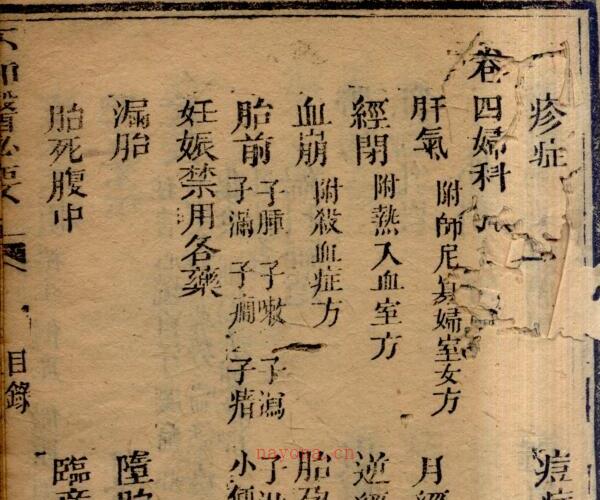 疹症 痘
卷四婦科
肝氣 附師尼寡婦室女方 月
經閉 附熱入血室方 逆
血崩 附殺血症方 胎
胎前 子腫 子嗽 子瀉 子
子滿 子癇 子瘖 小便
妊娠禁用各藥
漏胎 墮胎
胎死腹中 臨產
目錄
nayona.cn